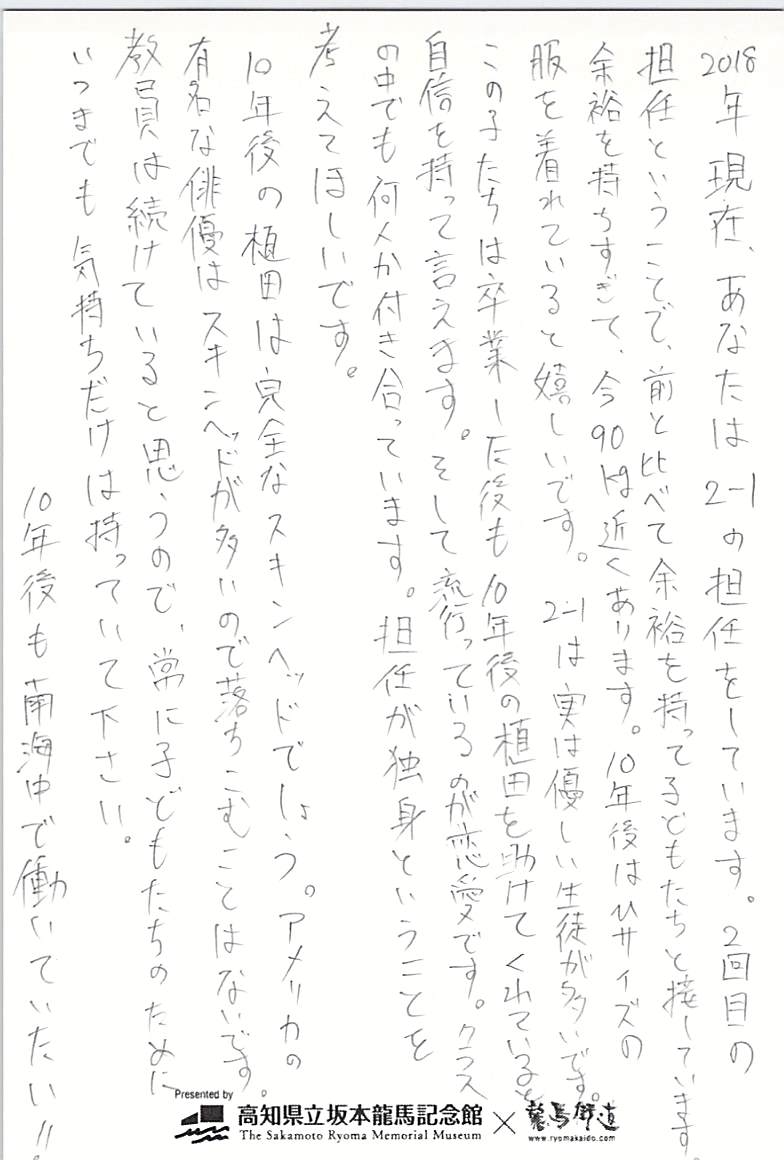 2018年現在、あなたは2-1の担任をしています。2回目の
担任ということで、前と比べて余裕を持って子どもたちと接しています。
余裕を持ちすぎて、今90kg近くあります。10年後はLLサイズの
服を着れていると嬉しいです。2-1は実は優しい生徒が多いです。
この子たちは卒業した後も10年後の植田を助けてくれていると
自信を持って言えます。そして流行っているのが恋愛です。クラス
の中でも何人か付き合っています。担任が独身ということを
考えてほしいです。
10年後の植田は完全なスキンヘッドでしょう。アメリカの
有名な俳優はスキンヘッドが多いので落ちこむことはないです。
教員は続けていると思うので、常に子どもたちのために
いつまでも気持ちだけは持っていて下さい。
10年後も南海中で働いていたい!!
Presented by
高知県立坂本龍馬記念館
The Sakamoto Ryoma Memorial Museum
×
龍馬街道
www.ryomakaido.com